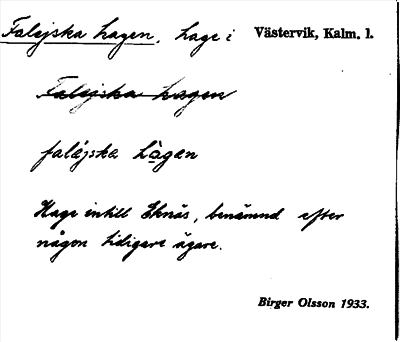 Falejska hagen, hage i Västervik, Kalm. l.
Falejska hagen
faläjska hàgen
Hage intill Eknäs, benämnd efter
någon tidigare ägare.
Birger Olsson 1933.